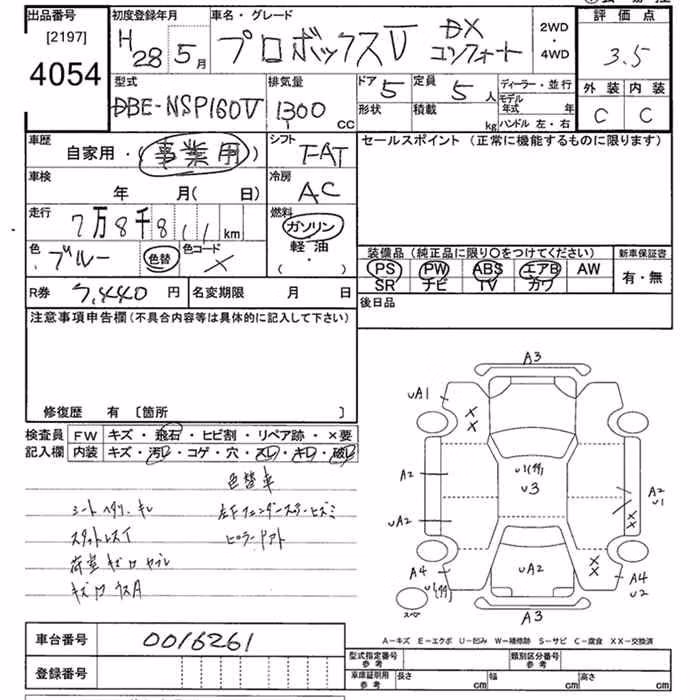 出品番号
[2197]
4054
初度登録年月
H 28 5月
車名・グレード
プロボックスV DX コンフォート
2WD・4WD
評価点
3.5
外装 内装
C C
型式
DBE-NSP160V
排気量
1300 CC
ドア 5
定員 5人
形状
積載 kg
ディーラー・並行
モデル年式 年
ハンドル 左・右
車歴
自家用・(事業用)
シフト
F-AT
セールスポイント (正常に機能するものに限ります)
車検
年 月( 日)
冷房
AC
走行
7万8千811km
燃料
ガソリン
軽油
( ・ )
色
ブルー
色替
色コード
R券 7,440円
名変期限 月 日
装備品 (純品に限り○をつけてください)
PS PW ABS エアB AW
SR ナビ TV カワ
新車保証書
有・無
後日品
注意事項申告欄 (不具合内容等は具体的に記入して下さい)
修復歴 有 [箇所 ]
検査員記入欄
FW キズ・飛石・ヒビ割・リペア跡・×要
内装 キズ・汚レ・コゲ・穴・スレ・キレ・破レ
色替車
シートヘタリ、キレ
左Fフェンダーステーヒズミ
A3
UA1
XX
A2
U3
A2
U1
UA2
XX
A4
UA2
XX
A4
U2
スペア
A3
車台番号 0016261
登録番号
A-キズ E-エクボ U-凹み W-補修跡 S-サビ C-腐食 XX-交換済
型式指定番号 参考
類別区分番号 参考
車庫証明用 参考
長さ cm
幅 cm
高さ cm